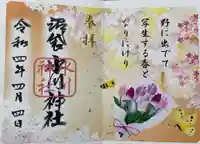 野に出でて
写生する春と
なりにけり
奉拝
沼袋 氷川神社
令和四年四月四日